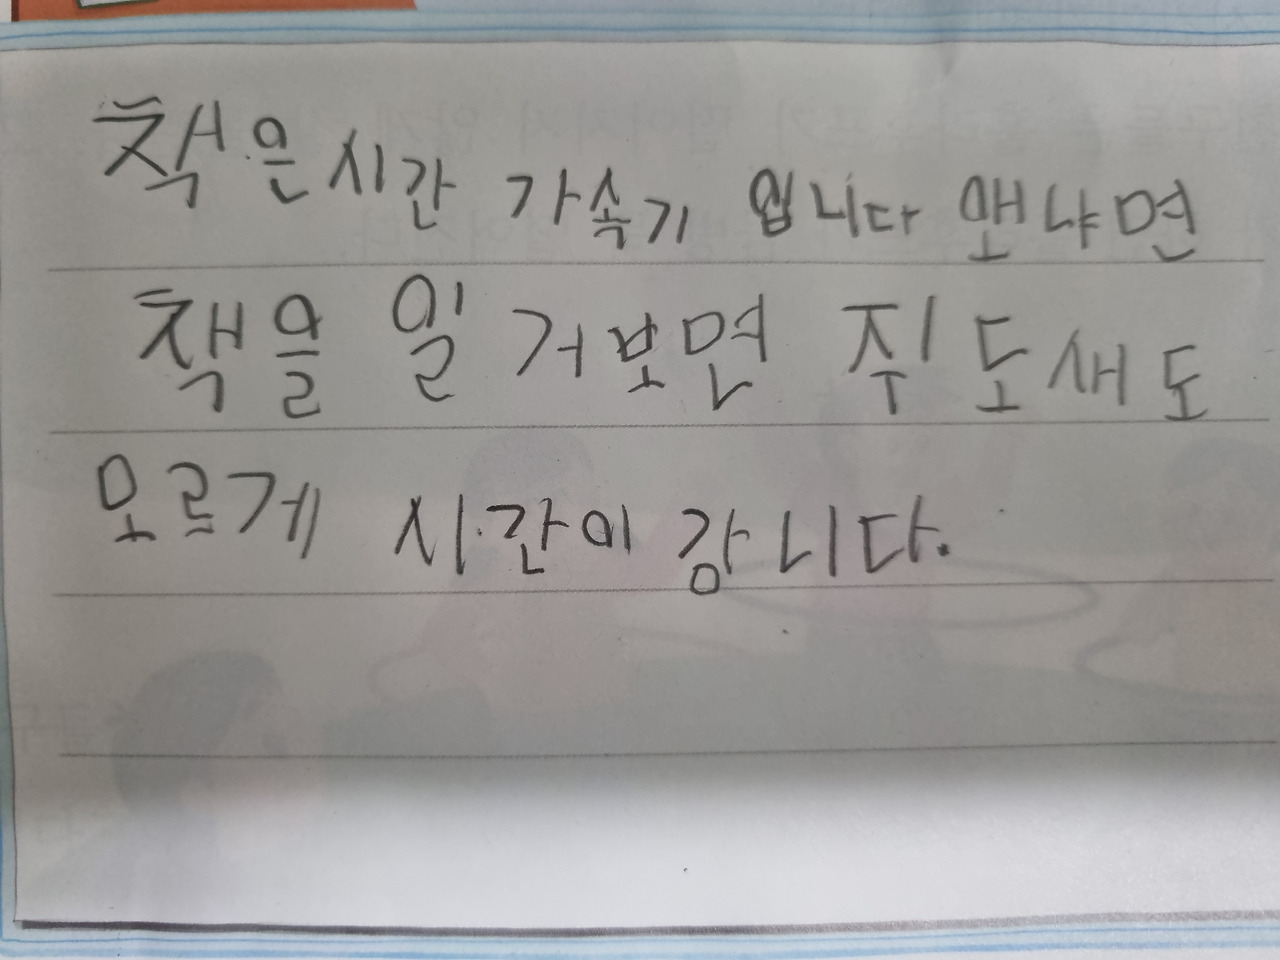 책은시간 가속기 입니다 왠냐면
책을 일거보면 쥐도새도
모르게 시간이 강니다.